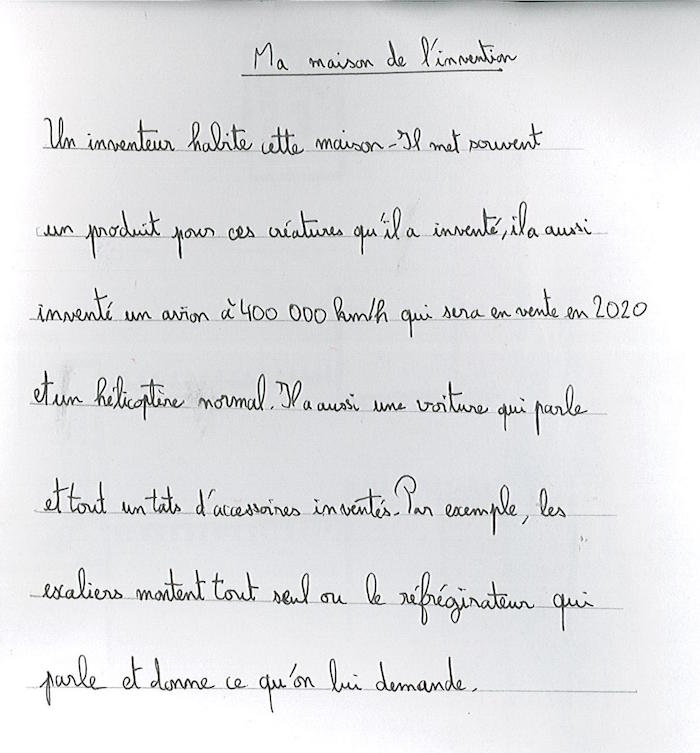 Ma maison de l'invention
Un inventeur habite cette maison. Il met souvent
un produit pour ces créatures qu'il a inventé, il a aussi
inventé un avion à 400 000 km/h qui sera en vente en 2020
et un hélicoptère normal. Il a aussi une voiture qui parle
et tout un tats d'accessoires inventés. Par exemple, les
exaliers montent tout seul ou le réfrégirateur qui
parle et donne ce qu'on lui demande.